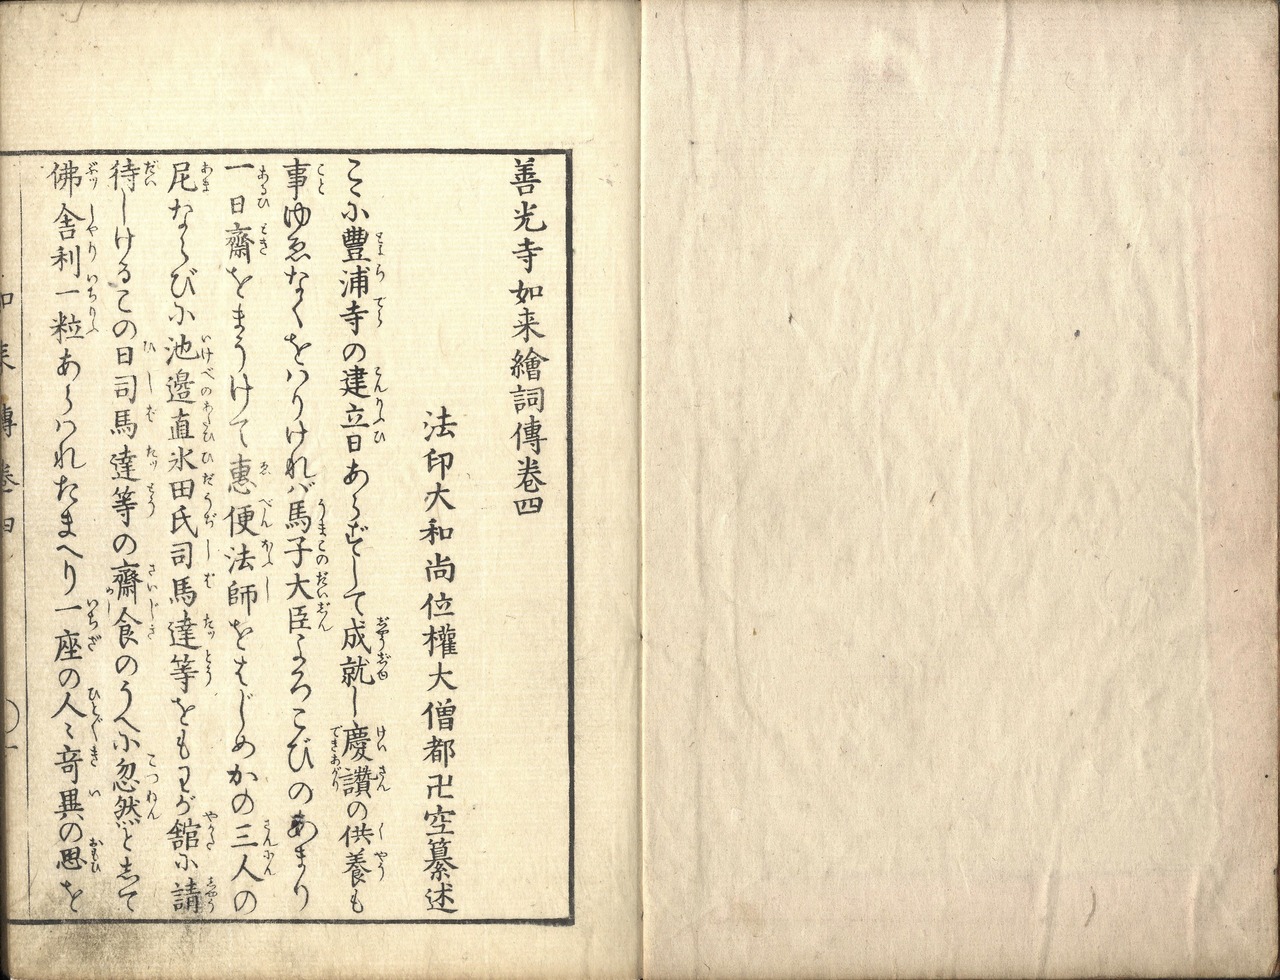 善光寺如来繪詞傳卷四
法印大和尚位權大僧都卍空纂述
こゝに豐浦寺の建立日あらずして成就し慶讃の供養も
事ゆゑなくをハりけれバ馬子大臣よろこびのあまり
一日齋をまうけて惠便法師をはじめかの三人の
尼ならびに池邊直氷田氏司馬達等をもわが舘に請
待しけるこの日司馬達等の齋食のうへに忽然として
佛舎利一粒あらハれたまへり一座の人〻竒異の思を
如来傳卷四